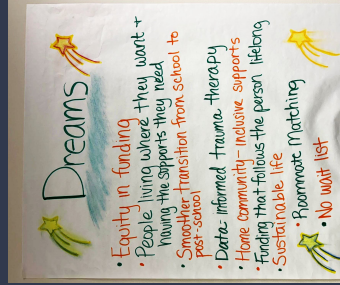 Dreams
• Equity in funding
• People living where they want +
having the supports they need
• Smoother transition from school to
post-school
• Data-informed trauma therapy
• Home community-inclusive supports
• Funding that follows the person lifelong
• Sustainable life
• Roommate Matching
• No wait list